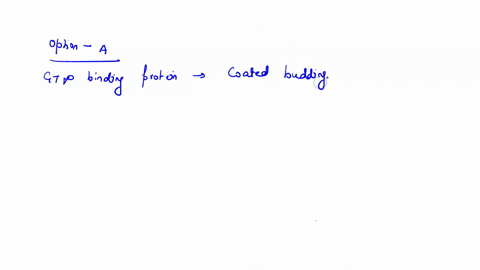 Option - A
GTP binding protein → Coated budding.